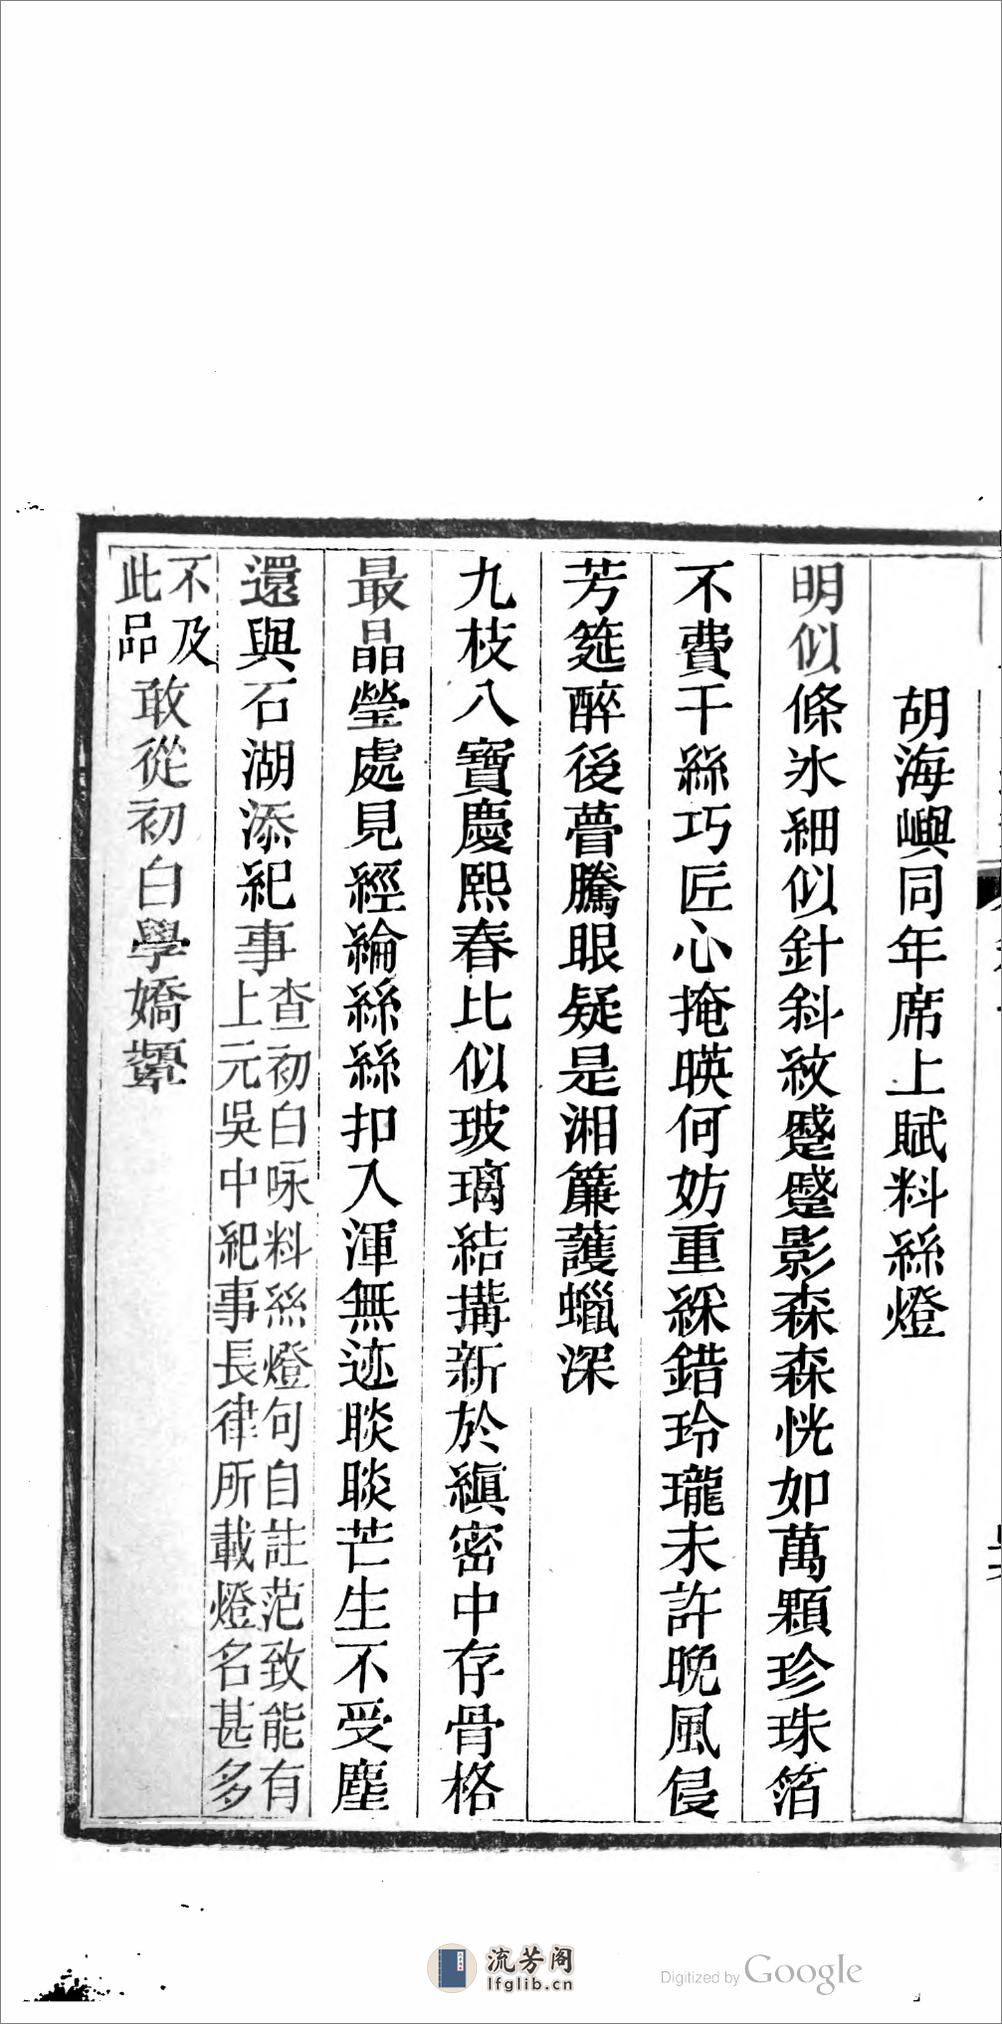 胡海嶼同年席上賦料絲燈
明似條氷細似針斜紋蹙蹙影森森恍如萬顆珍珠箔
不費千絲巧匠心掩暎何妨重綵錯玲瓏未許晚風侵
芳筵醉後瞢騰眼疑是湘簾護蠟深
九枝八寶慶熙春比似玻璃結搆新於縝密中存骨格
最晶瑩處見經綸絲絲扣入渾無迹睒睒芒生不受塵
還與石湖添紀事
查初白咏料絲燈句自註范致能有
上元吳中紀事長律所載燈名甚多
不及
此品
敢從初白學嬌顰
流芳阁
lfglib.cn
Digitized by Google